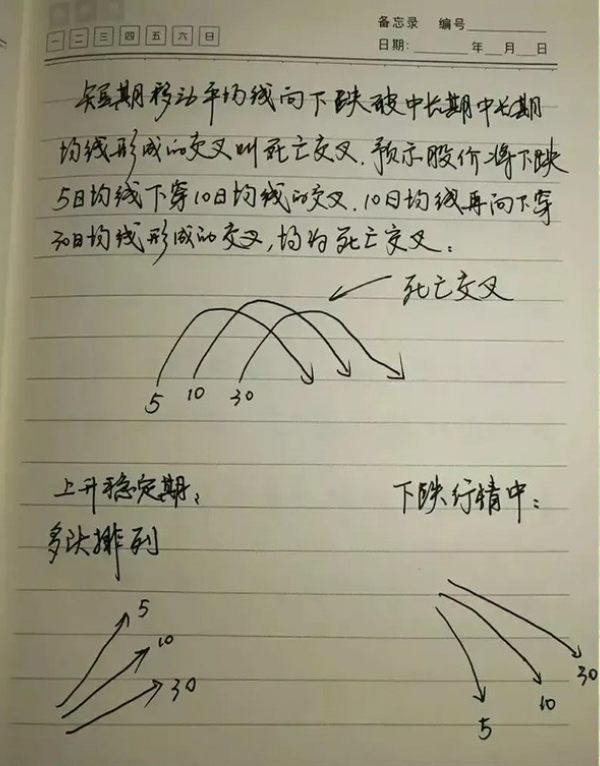 备忘录 编号
一 二 三 四 五 六 日
日期: 年 月 日
短期移动平均线向下跌破中长期中长期
均线形成的交叉叫死亡交叉.预示股价将下跌
5日均线下穿10日均线的交叉.10日均线再向下穿
30日均线形成的交叉,均为死亡交叉:
死亡交叉
5 10 30
上升稳定期:
多头排列
5
10
30
下跌行情中:
30
10
5